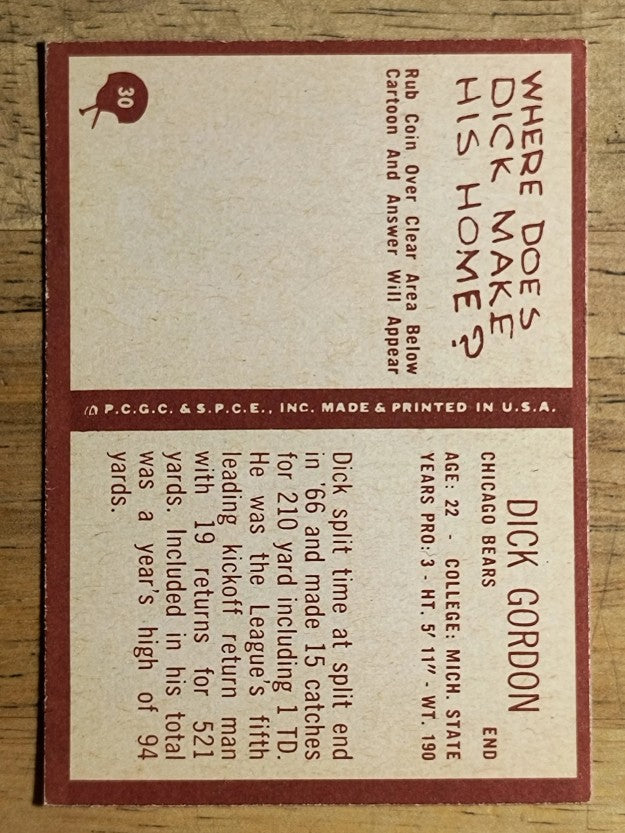 WHERE DOES
DICK MAKE
HIS HOME?
Rub Coin Over Clear Area Below
Cartoon And Answer Will Appear
30
P.C.G.C. & S.P.C.E., INC. MADE & PRINTED IN U.S.A.
DICK GORDON
CHICAGO BEARS END
AGE: 22 - COLLEGE: MICH. STATE
YEARS PRO: 3 - HT. 5' 11" - WT. 190
Dick split time at split end
in '66 and made 15 catches
for 210 yard including 1 TD.
He was the League's fifth
leading kickoff return man
with 19 returns for 521
yards. Included in his total
was a year's high of 94
yards.